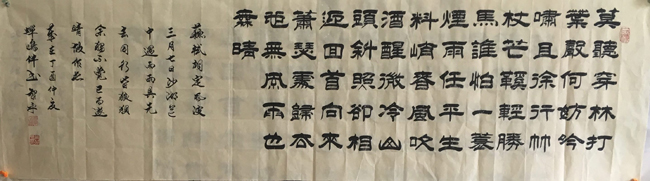 莫聽穿林打
葉聲何妨吟
嘯且徐行竹
杖芒鞵輕勝
馬誰怕一蓑
煙雨任平生
料峭春風吹
酒醒微冷山
頭斜照卻相
迎回首向來
蕭瑟處歸去
也無風雨也
無晴
蘇軾詞定風波
三月七日沙湖道
中遇雨雨具先
去同行皆狼狽
余獨不覺已而遂
晴故作此
歲在丁酉仲夏
蟬鳴伴